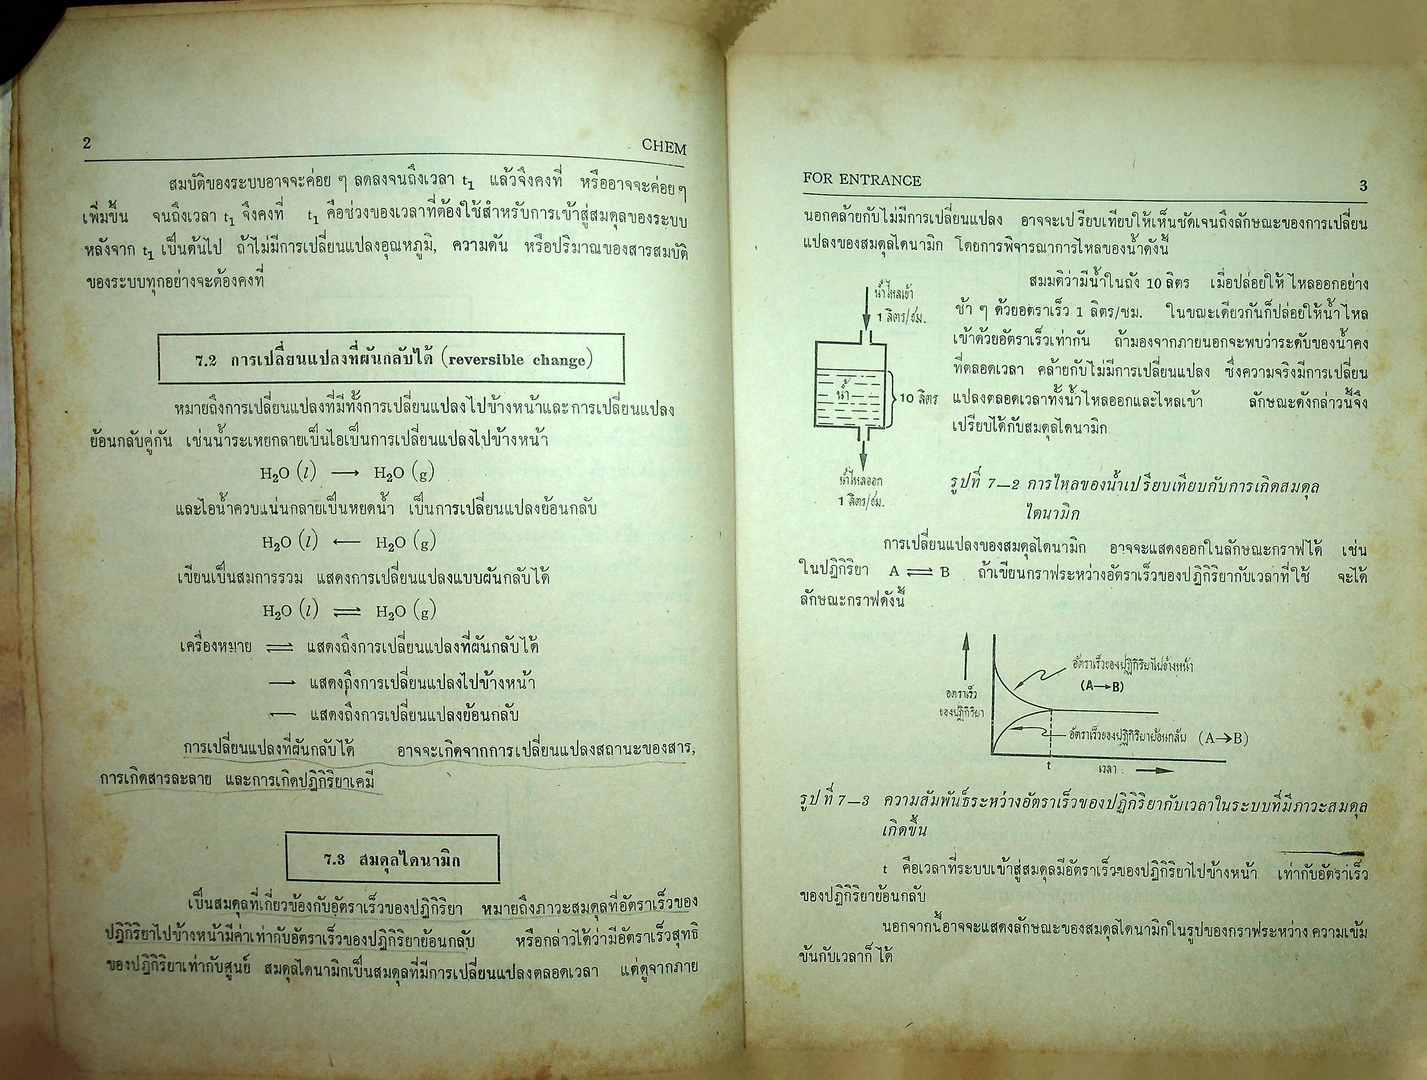 2 CHEM
สมบัติของระบบอาจจะค่อย ๆ ลดลงจนถึงเวลา t₁ แล้วจึงคงที่ หรืออาจจะค่อยๆ
เพิ่มขึ้น จนถึงเวลา t₁ จึงคงที่ t₁ คือช่วงของเวลาที่ต้องใช้สำหรับการเข้าสู่สมดุลของระบบ
หลังจาก t₁ เป็นต้นไป ถ้าไม่มีการเปลี่ยนแปลงอุณหภูมิ, ความดัน หรือปริมาณของสารสมบัติ
ของระบบทุกอย่างจะต้องคงที่
7.2 การเปลี่ยนแปลงที่ผันกลับได้ (reversible change)
หมายถึงการเปลี่ยนแปลงที่มีทั้งการเปลี่ยนแปลงไปข้างหน้าและการเปลี่ยนแปลง
ย้อนกลับคู่กัน เช่นน้ำระเหยกลายเป็นไอเป็นการเปลี่ยนแปลงไปข้างหน้า
H₂O (l) → H₂O (g)
และไอน้ำควบแน่นกลายเป็นหยดน้ำ เป็นการเปลี่ยนแปลงย้อนกลับ
H₂O (l) ← H₂O (g)
เขียนเป็นสมการรวม แสดงการเปลี่ยนแปลงแบบผันกลับได้
H₂O (l) ⇌ H₂O (g)
เครื่องหมาย ⇌ แสดงถึงการเปลี่ยนแปลงที่ผันกลับได้
→ แสดงถึงการเปลี่ยนแปลงไปข้างหน้า
← แสดงถึงการเปลี่ยนแปลงย้อนกลับ
การเปลี่ยนแปลงที่ผันกลับได้ อาจจะเกิดจากการเปลี่ยนแปลงสถานะของสาร,
การเกิดสารละลาย และการเกิดปฏิกิริยาเคมี
7.3 สมดุลไดนามิก
เป็นสมดุลที่เกี่ยวข้องกับอัตราเร็วของปฏิกิริยา หมายถึงภาวะสมดุลที่อัตราเร็วของ
ปฏิกิริยาไปข้างหน้ามีค่าเท่ากับอัตราเร็วของปฏิกิริยาย้อนกลับ หรือกล่าวได้ว่ามีอัตราเร็วสุทธิ
ของปฏิกิริยาเท่ากับศูนย์ สมดุลไดนามิกเป็นสมดุลที่มีการเปลี่ยนแปลงตลอดเวลา แต่ดูจากภาย
FOR ENTRANCE 3
นอกคล้ายกับไม่มีการเปลี่ยนแปลง อาจจะเปรียบเทียบให้เห็นชัดเจนถึงลักษณะของการเปลี่ยน
แปลงของสมดุลไดนามิก โดยการพิจารณาการไหลของน้ำดังนี้
สมมติว่ามีน้ำในถัง 10 ลิตร เมื่อปล่อยให้ไหลออกอย่าง
ช้า ๆ ด้วยอตราเร็ว 1 ลิตร/ชม. ในขณะเดียวกันก็ปล่อยให้น้ำไหล
เข้าด้วยอัตราเร็วเท่ากัน ถ้ามองจากภายนอกจะพบว่าระดับของน้ำคง
ที่ตลอดเวลา คล้ายกับไม่มีการเปลี่ยนแปลง ซึ่งความจริงมีการเปลี่ยน
แปลงตลอดเวลาทั้งน้ำไหลออกและไหลเข้า ลักษณะดังกล่าวนี้จึง
เปรียบได้กับสมดุลไดนามิก
น้ำไหลเข้า
1 ลิตร/ชม.
น้ำ
10 ลิตร
น้ำไหลออก
1 ลิตร/ชม.
รูปที่ 7—2 การไหลของน้ำเปรียบเทียบกับการเกิดสมดุล
ไดนามิก
การเปลี่ยนแปลงของสมดุลไดนามิก อาจจะแสดงออกในลักษณะกราฟได้ เช่น
ในปฏิกิริยา A ⇌ B ถ้าเขียนกราฟระหว่างอัตราเร็วของปฏิกิริยากับเวลาที่ใช้ จะได้
ลักษณะกราฟดังนี้
อัตราเร็ว
ของปฏิกิริยา
อัตราเร็วของปฏิกิริยาไปข้างหน้า
(A→B)
อัตราเร็วของปฏิกิริยาย้อนกลับ (A→B)
t
เวลา
รูปที่ 7—3 ความสัมพันธ์ระหว่างอัตราเร็วของปฏิกิริยากับเวลาในระบบที่มีภาวะสมดุล
เกิดขึ้น
t คือเวลาที่ระบบเข้าสู่สมดุลมีอัตราเร็วของปฏิกิริยาไปข้างหน้า เท่ากับอัตราเร็ว
ของปฏิกิริยาย้อนกลับ
นอกจากนี้อาจจะแสดงลักษณะของสมดุลไดนามิกในรูปของกราฟระหว่าง ความเข้ม
ข้นกับเวลาก็ ได้